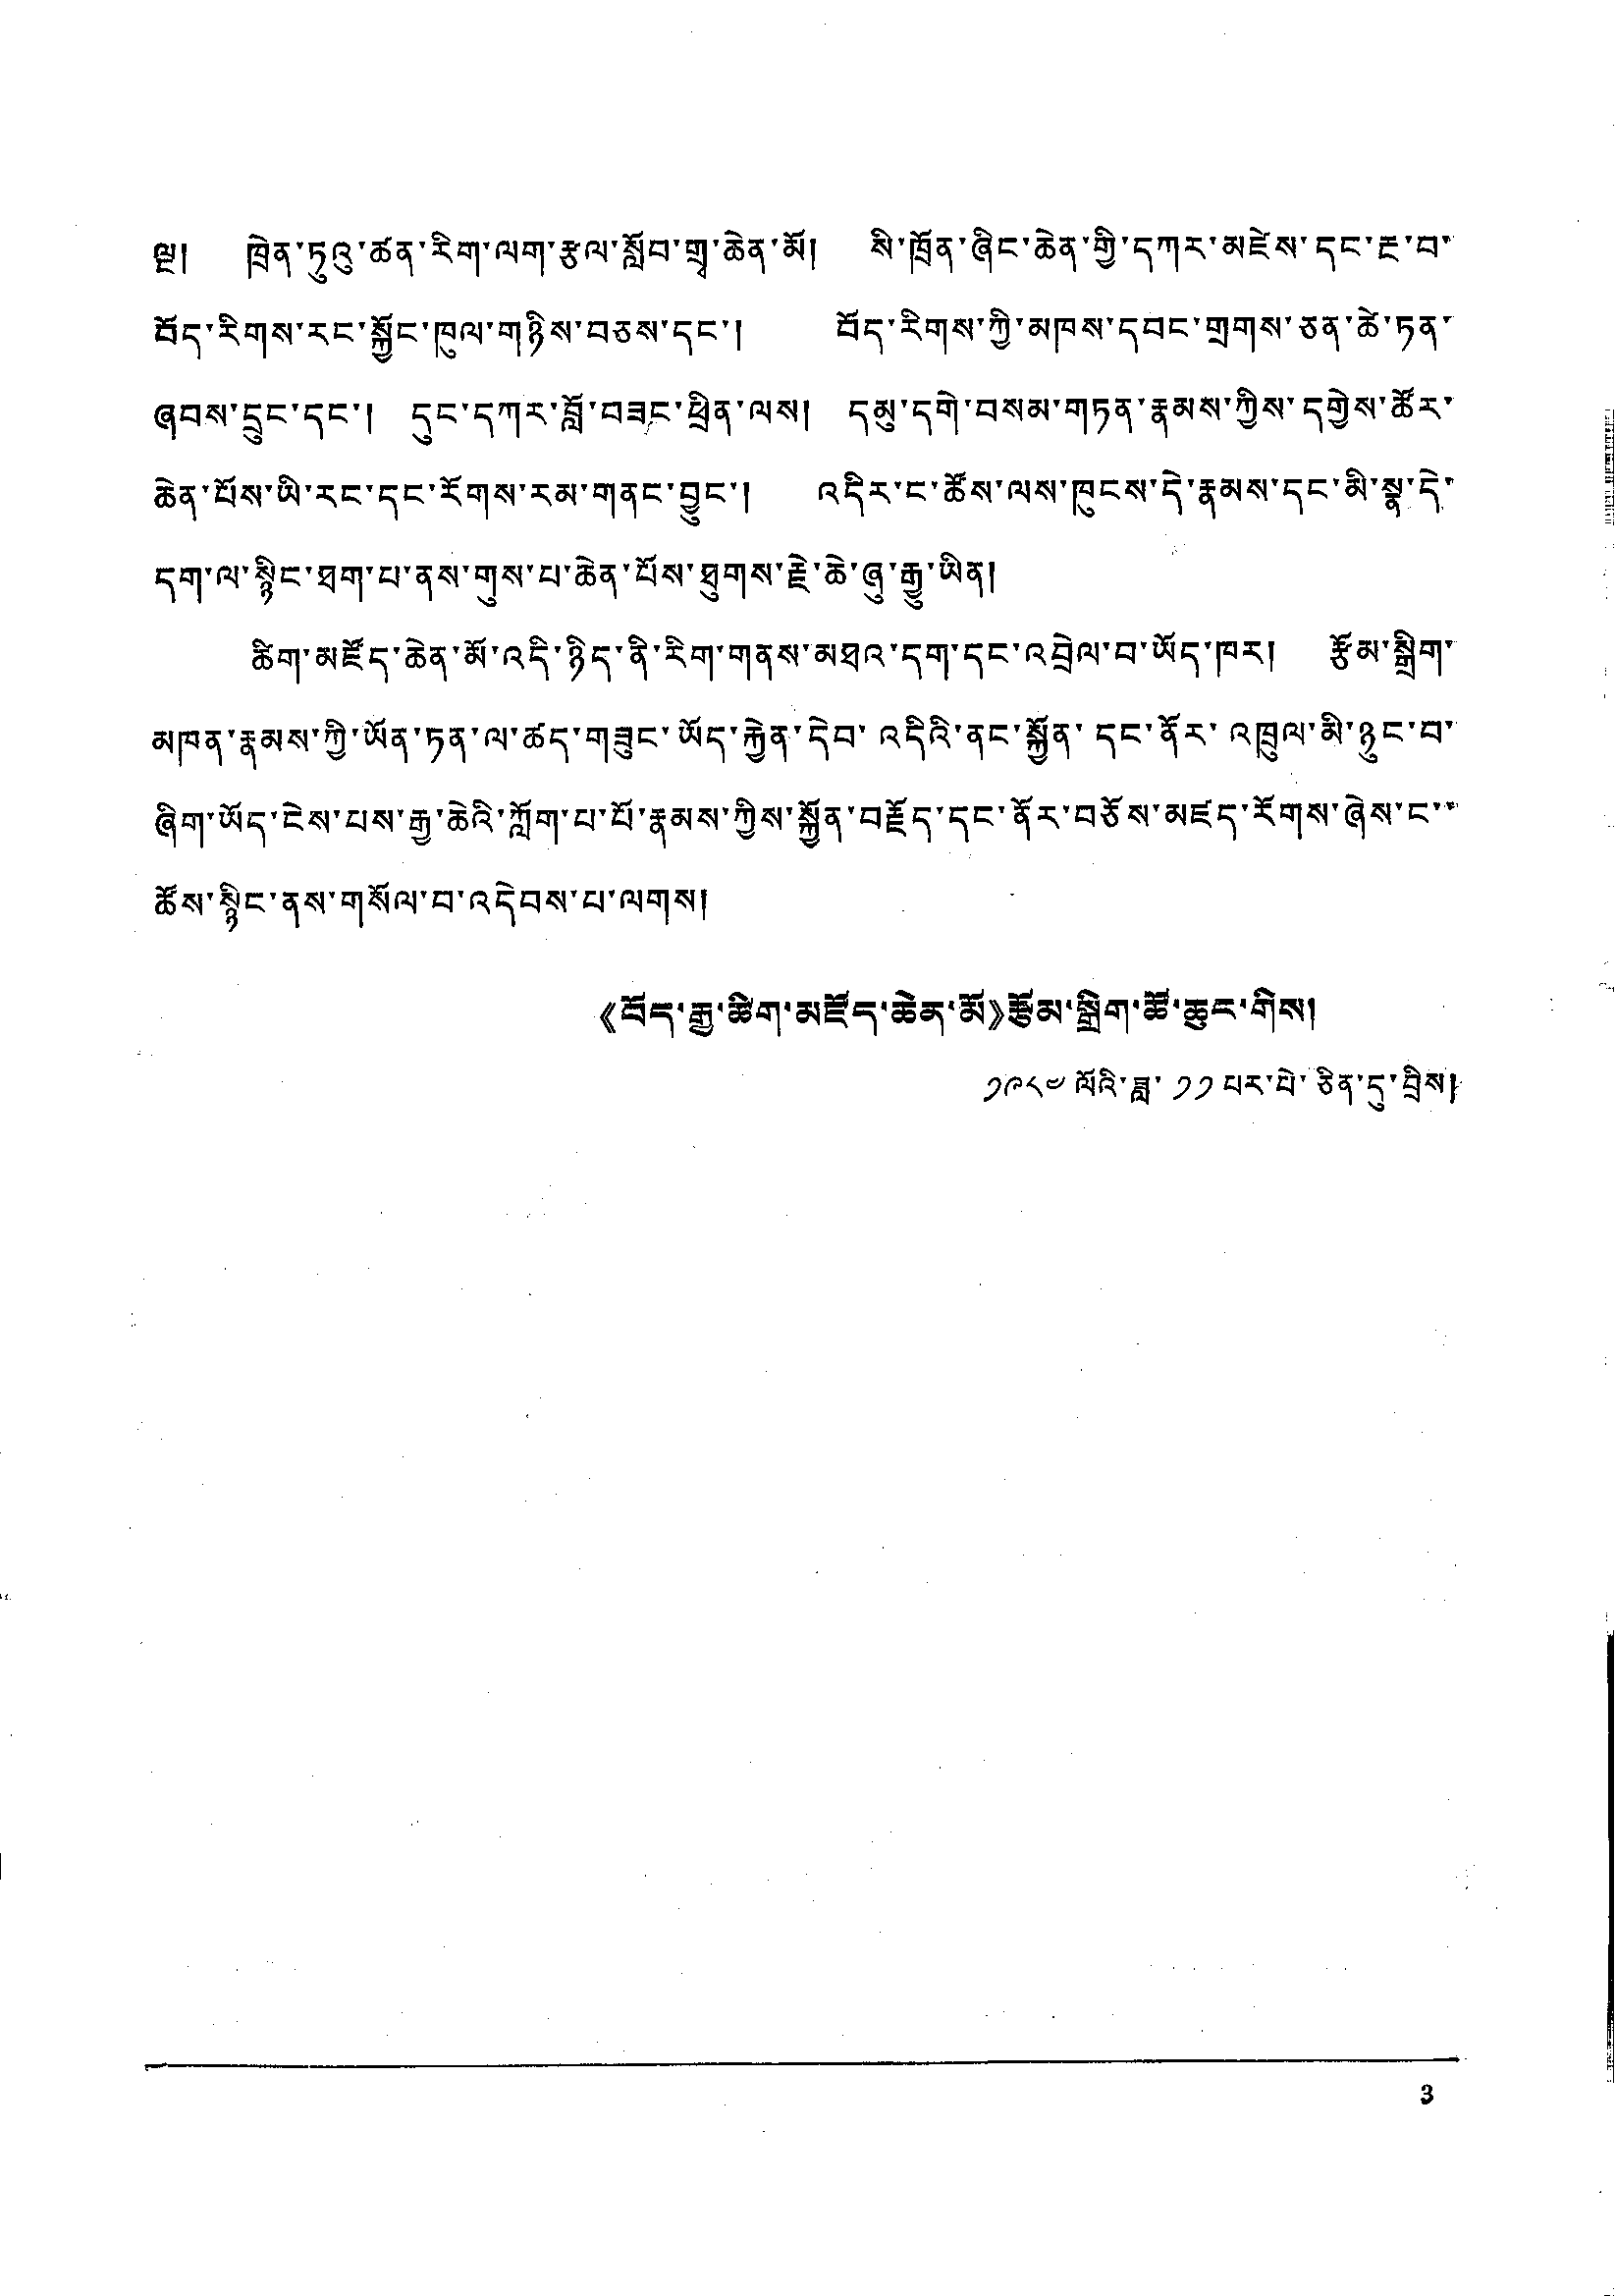 ལྔ། ཁྲེན་ཏུའུ་ཚན་རིག་ལག་རྩལ་སློབ་གྲྭ་ཆེན་མོ། སི་ཁྲོན་ཞིང་ཆེན་གྱི་དཀར་མཛེས་དང་རྔ་བ་
བོད་རིགས་རང་སྐྱོང་ཁུལ་གཉིས་བཅས་དང་། བོད་རིགས་ཀྱི་མཁས་དབང་གྲགས་ཅན་ཚེ་ཏན་
ཞབས་དྲུང་དང་། དུང་དཀར་བློ་བཟང་ཕྲིན་ལས། དམུ་དགེ་བསམ་གཏན་རྣམས་ཀྱིས་དགྱེས་ཚོར་
ཆེན་པོས་ཡི་རང་དང་རོགས་རམ་གནང་བྱུང་། འདིར་ང་ཚོས་ལས་ཁུངས་དེ་རྣམས་དང་མི་སྣ་དེ་
དག་ལ་སྙིང་ཐག་པ་ནས་གུས་པ་ཆེན་པོས་ཐུགས་རྗེ་ཆེ་ཞུ་རྒྱུ་ཡིན།
ཚིག་མཛོད་ཆེན་མོ་འདི་ཉིད་ནི་རིག་གནས་མཐའ་དག་དང་འབྲེལ་བ་ཡོད་ཁར། རྩོམ་སྒྲིག་
མཁན་རྣམས་ཀྱི་ཡོན་ཏན་ལ་ཚད་གཟུང་ཡོད་རྐྱེན་དེབ་འདིའི་ནང་སྐྱོན་དང་ནོར་འཁྲུལ་མི་ཉུང་བ་
ཞིག་ཡོད་ངེས་པས་རྒྱ་ཆེའི་ཀློག་པ་པོ་རྣམས་ཀྱིས་སྐྱོན་བརྗོད་དང་ནོར་བཅོས་མཛད་རོགས་ཞེས་ང་
ཚོས་སྙིང་ནས་གསོལ་བ་འདེབས་པ་ལགས།
《བོད་རྒྱ་ཚིག་མཛོད་ཆེན་མོ》རྩོམ་སྒྲིག་ཚོ་ཆུང་གིས།
༡༩༨༤ ལོའི་ཟླ་ ༡༡ པར་པེ་ཅིན་དུ་བྲིས།
3